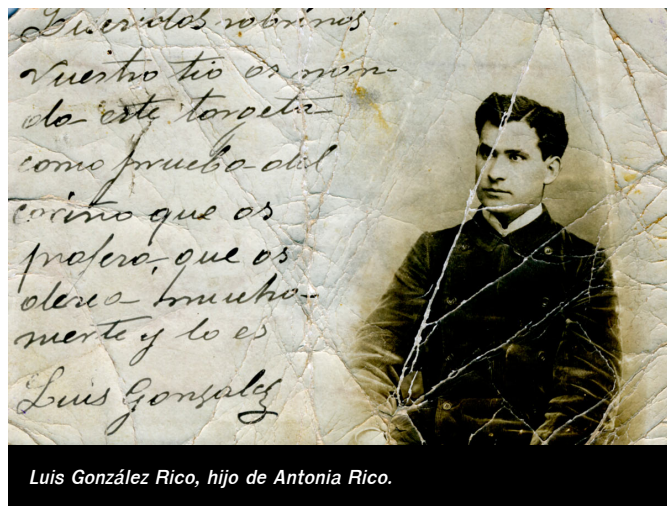 Queridos sobrinos
Vuestro tio os man-
da este targeta
como prueba del
cariño que os
profesa, que os
desea mucha
suerte y lo es
Luis Gonzalez
Luis González Rico, hijo de Antonia Rico.